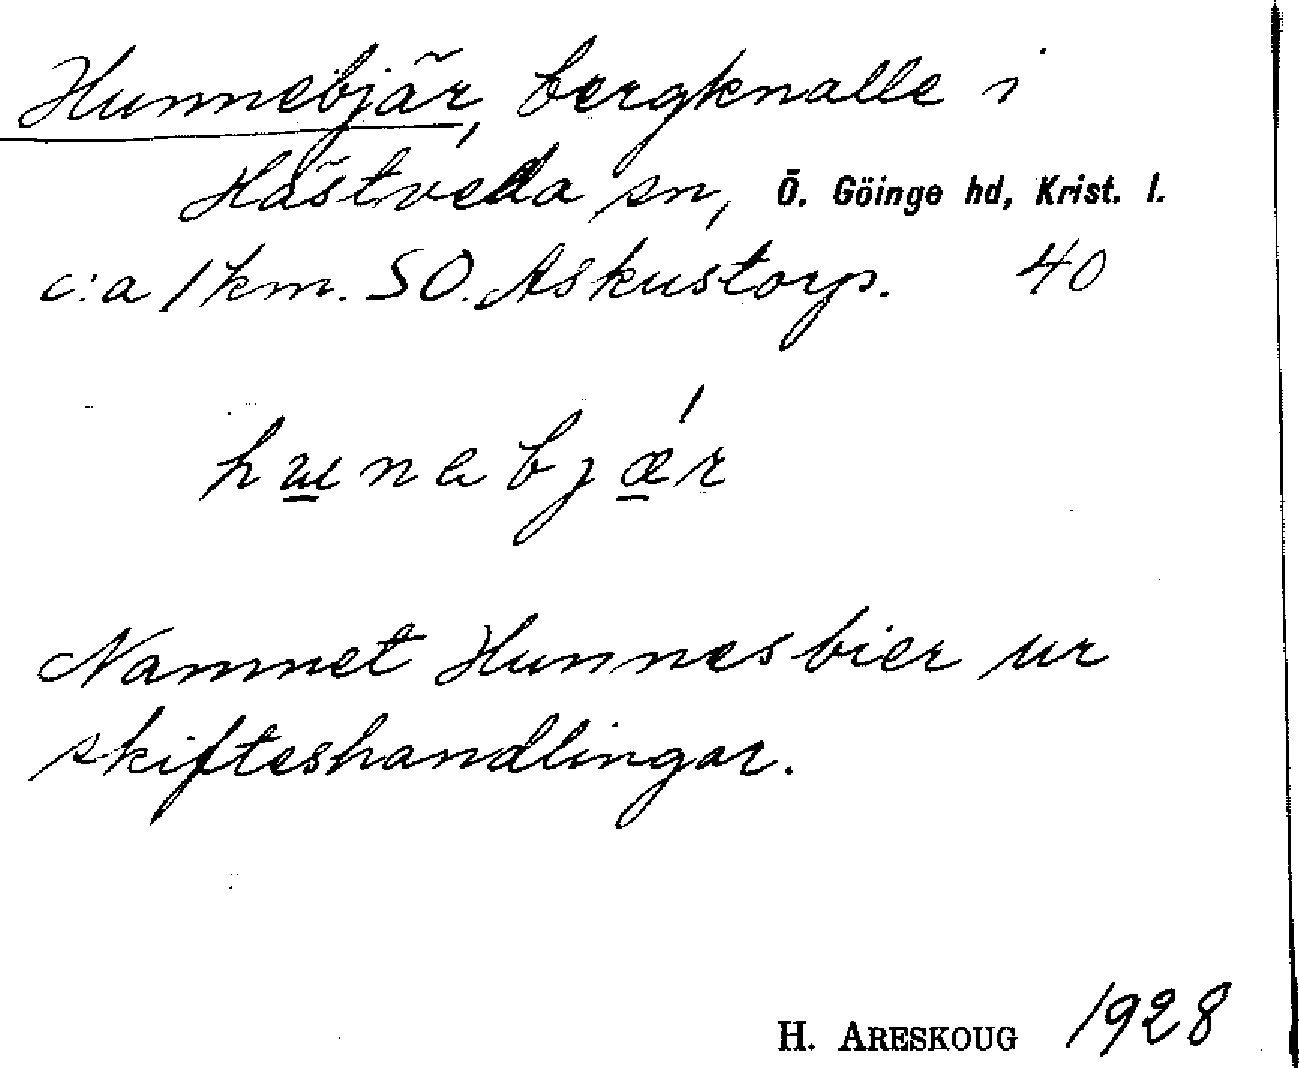 Hunnebjär, bergknalle i
Hästveda sn, Ö. Göinge hd, Krist. l.
c:a 1 km. SO. Askustorp. 40
hunabjǽr
Namnet Hunnesbier ur
skifteshandlingar.
H. ARESKOUG 1928